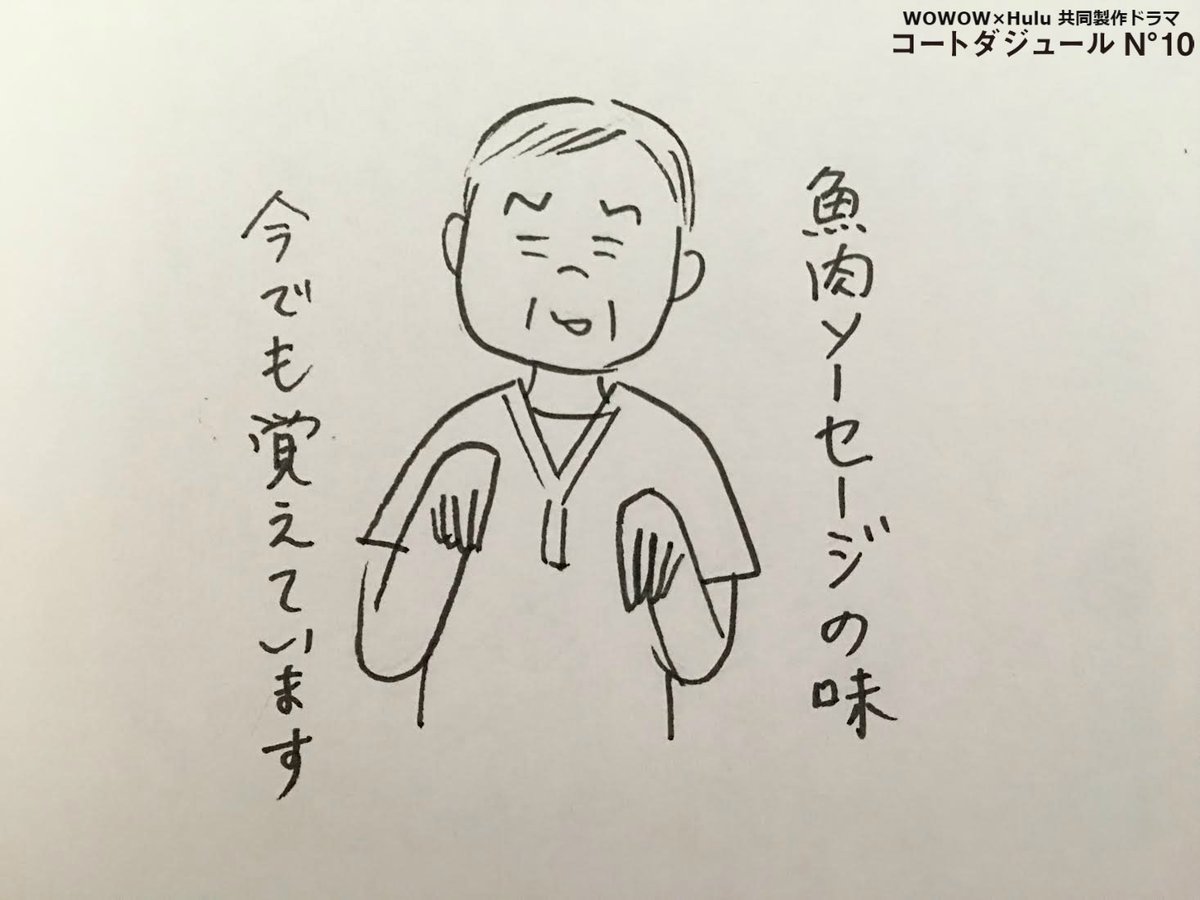 WOWOW×Hulu 共同製作ドラマ
コートダジュール N°10
魚肉ソーセージの味
今でも覚えています